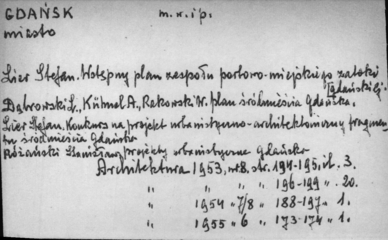 GDAŃSK m.r.ip.
miasto
Lier Stefan. Wstępny plan zespołu portowo-miejskiego zatoki
[gdańskiej.
Dąbrowski L., Kühnel A., Rakowski W. plan śródmieścia Gdańska.
Lier Stefan. Konkurs na projekt urbanistyczno-architektoniczny fragmen-
tu śródmieścia Gdańska
Różański Stanisław projekty urbanistyczne Gdańska
Architektura 1953, nr 8. str. 194-195, il. 3.
" " " 196-199 " 20.
" 1954 " 7/8 " 188-197 " 1.
" 1955 " 6 " 173-174 " 1.